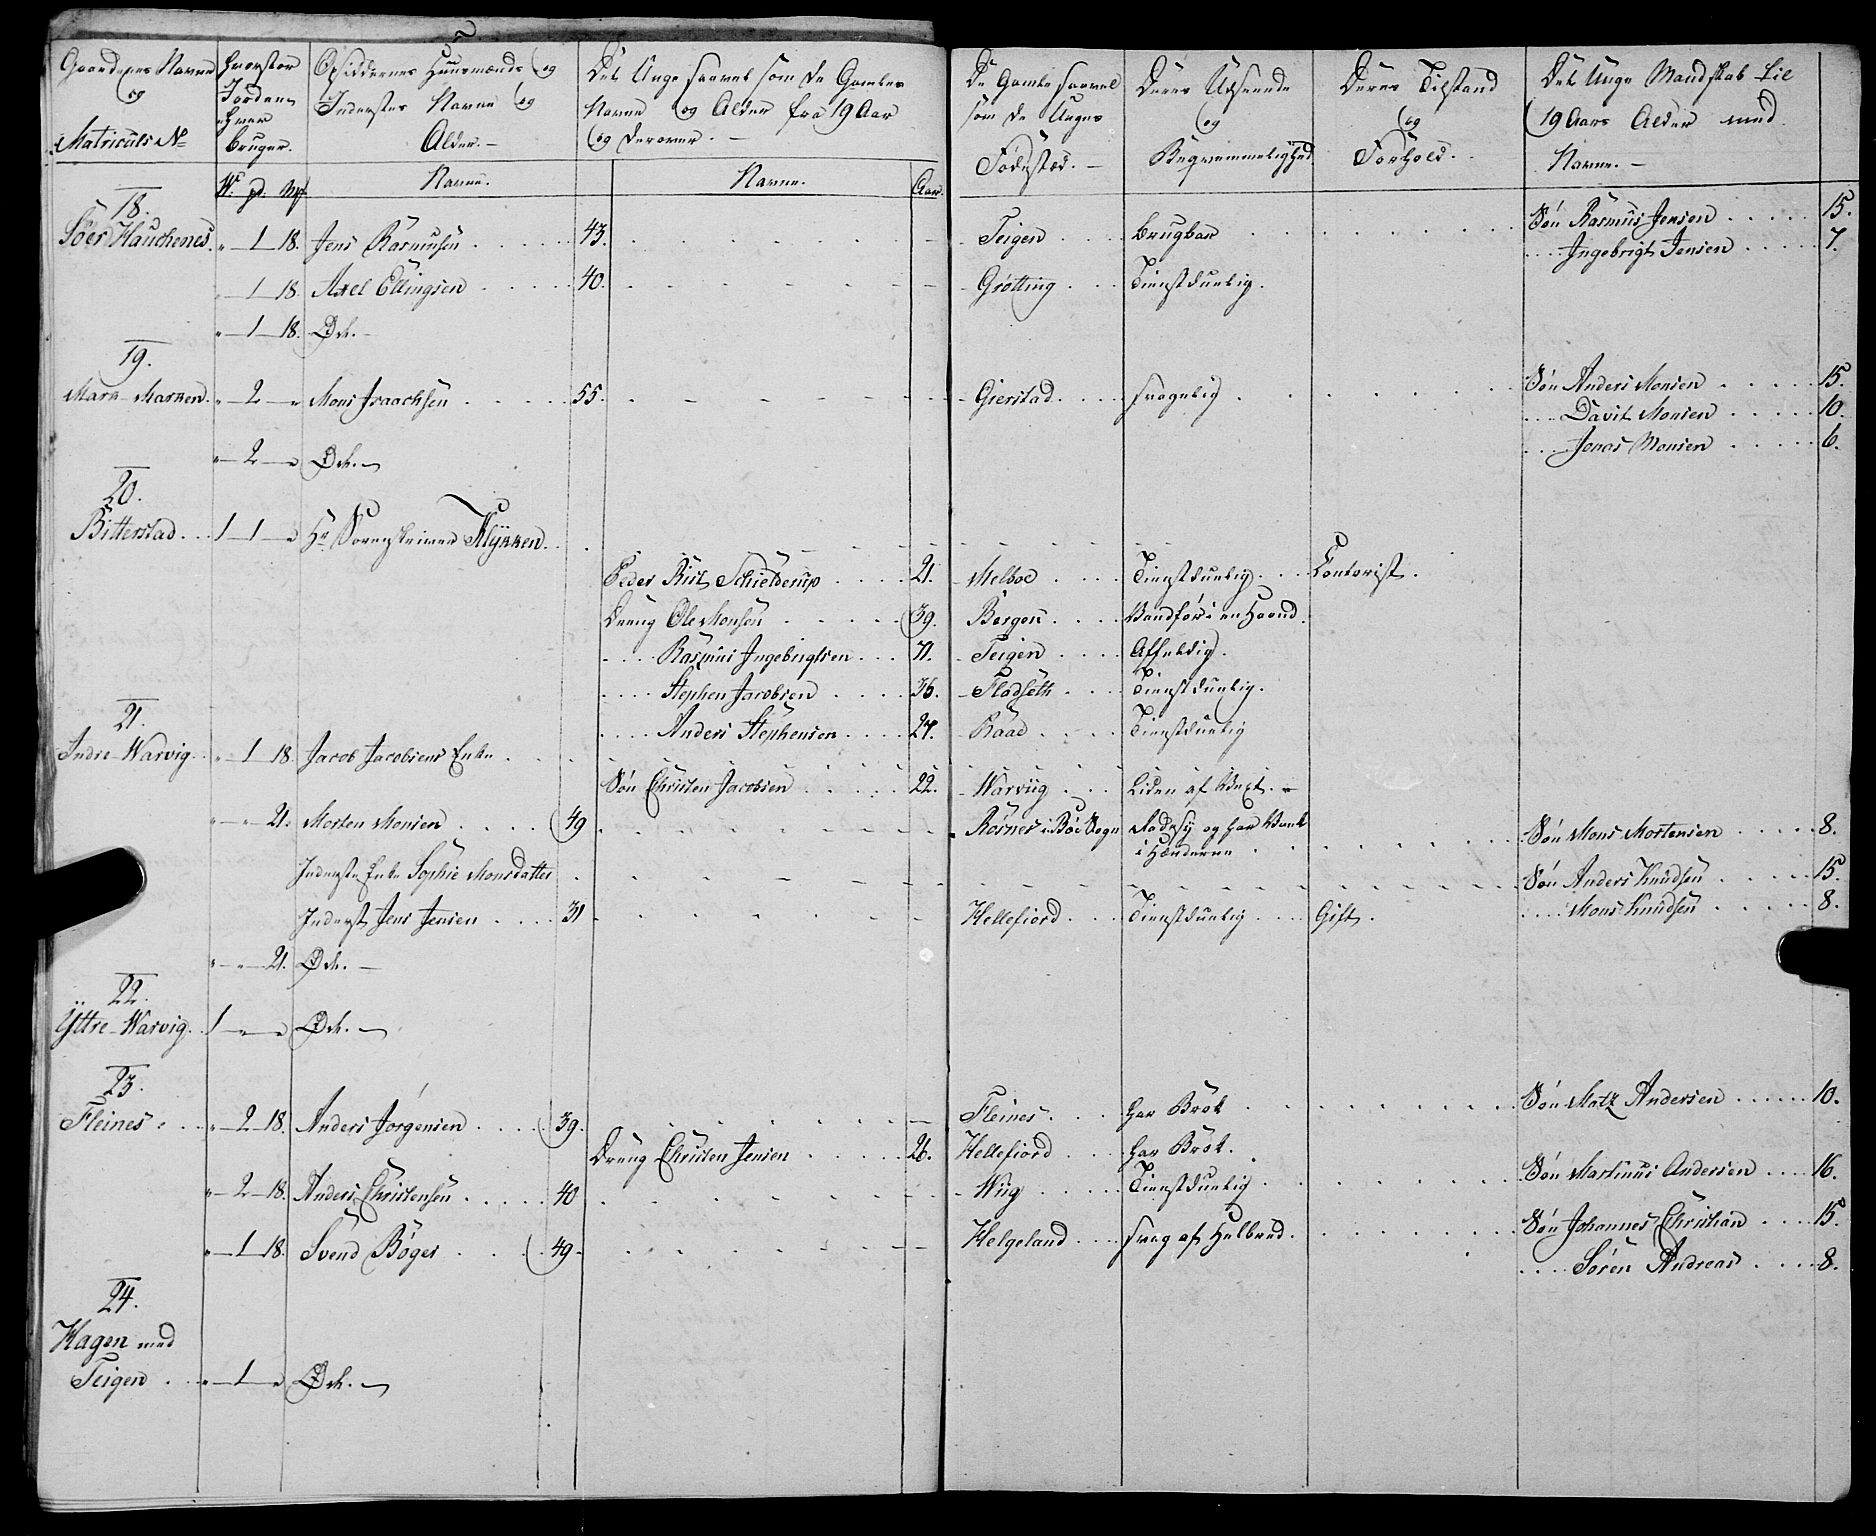 Gaardenes Navne og Matriculs No
Hvorstor Jorden hver bruger.
Opsiddernes Huusmænds og Inderstes Navne og Alder. —
Det Unge saavel som de Gamles Navne og Alder fra 19 Aar og derover. —
De Gamle saavel som de Unges Fødested. —
Deres Udseende og Beqvemmelighed
Deres Tilstand og Forhold.
Det Unge Mandskab til 19 Aars Alder med Navne. —
W. pd. Mk
Navne.
Navne.
Aar.
18.
Söer Hauchenes. " 1 18. Jens Rasmusen 43. Teigen brugbar Søn Rasmus Jensen 15.
Ingebrigt Jensen 7.
" 1 18. Axel Ellingsen 40. Grøtting Tienstduelig.
" 1 18. Øde. —
19.
Mark-Marken. " 2 " Mons Isaachsen 55. Gierstad svagelig Søn Anders Monsen 15.
Davit Monsen 10.
Jonas Monsen 6.
" 2 " Øde. —
20.
Bitterstad. 1 1 " Hr Sorenskriver Klykken.
Peder Rist Schielderup 21. Melboe Tienstduelig Contorist.
Dreng Ole Monsen 39. Bergen Vandför i en Haand.
Rasmus Ingebrigtsen 71. Teigen Affeldig.
Stephen Jacobsen 36. Flodseth Tienstduelig.
Anders Stephensen 27. Raad Tienstduelig
21.
Indre-Warvig. " 1 18. Jacob Jacobsens Enke
Søn Christen Jacobsen 22. Warviig Liden af Vext. —
" " 21. Morten Monsen 49 Rösnes i Böe Sogn Radesyg og har Værk i Hænderne Søn Mons Mortensen 8.
Inderste Enke Sophie Monsdatter Søn Anders Knudsen 15.
Inderst Jens Jensen 31 Hellefiord Tienstduelig Gift. Mons Knudsen 8.
" " 21. Øde. —
22.
Yttre-Warvig. 1 " " Øde. —
23.
Fleines. " 2 18. Anders Jörgensen 39. Fleines. har Brok Søn Matz Andersen 10.
Dreng Christen Jensen 26. Hellefiord har Brok.
" 2 18. Anders Christensen 40 Wiig Tienstduelig Søn Martinus Andersen 16.
" 1 18. Svend Böger 49 Helgeland svag af Helbred. Søn Johannes Christian 15.
Sören Andreas 8.
24.
Hagen med
Teigen " 1 " Øde. —